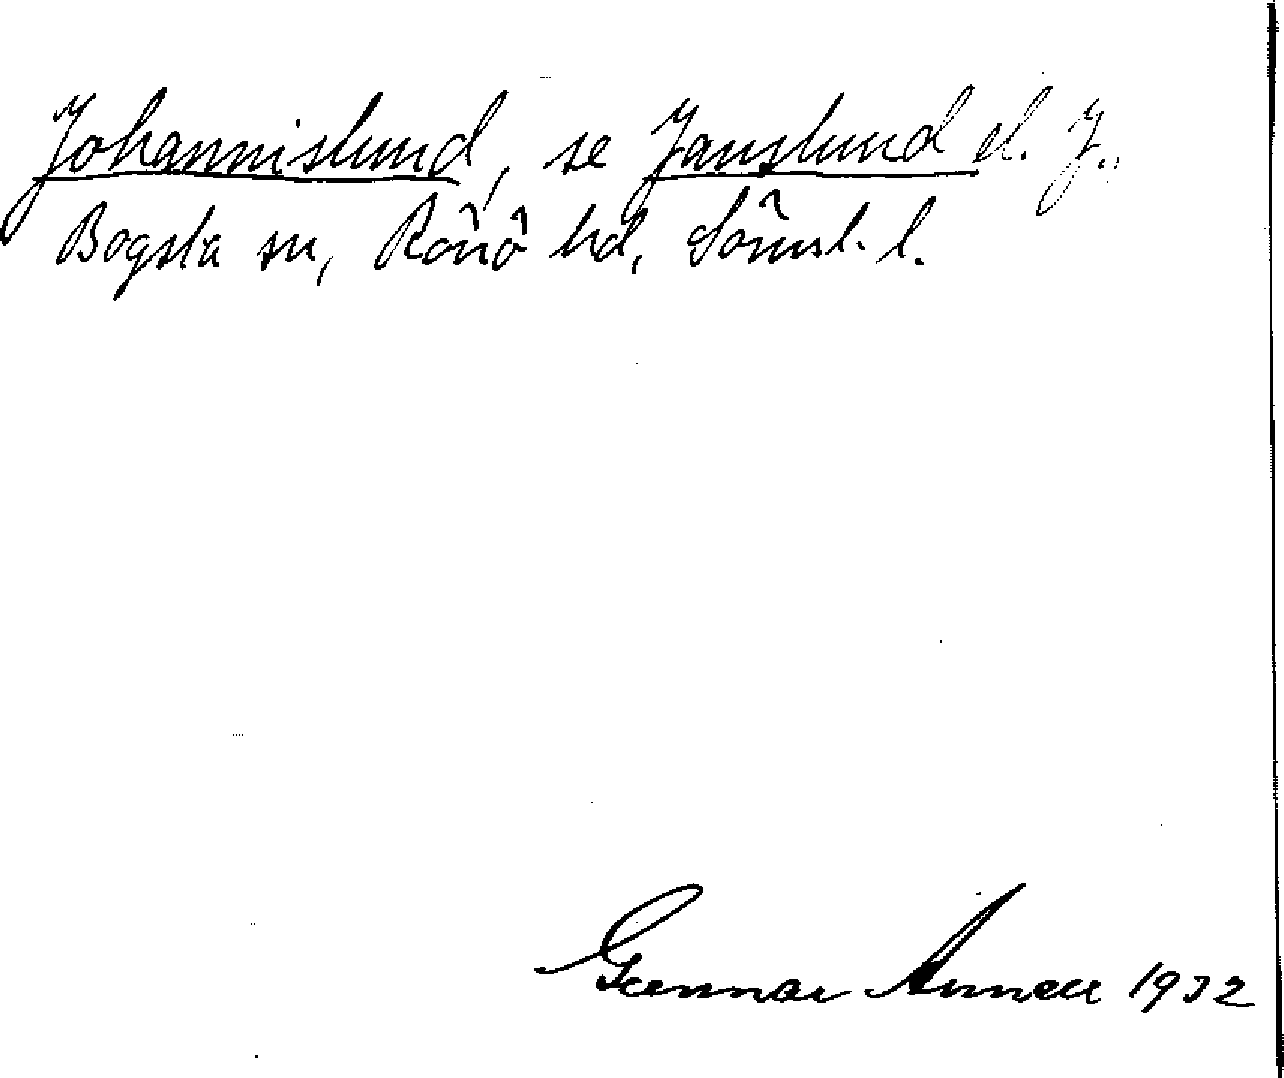 Johannislund, se Janslund el. J.,
Bogsta sn, Rönö hd, Sörml. l.
Gunnar Annell 1932